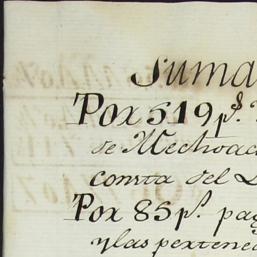 Suma
Por 519 p.s
de Mechoac
consta del
Por 85 p.s pag
y las pertene